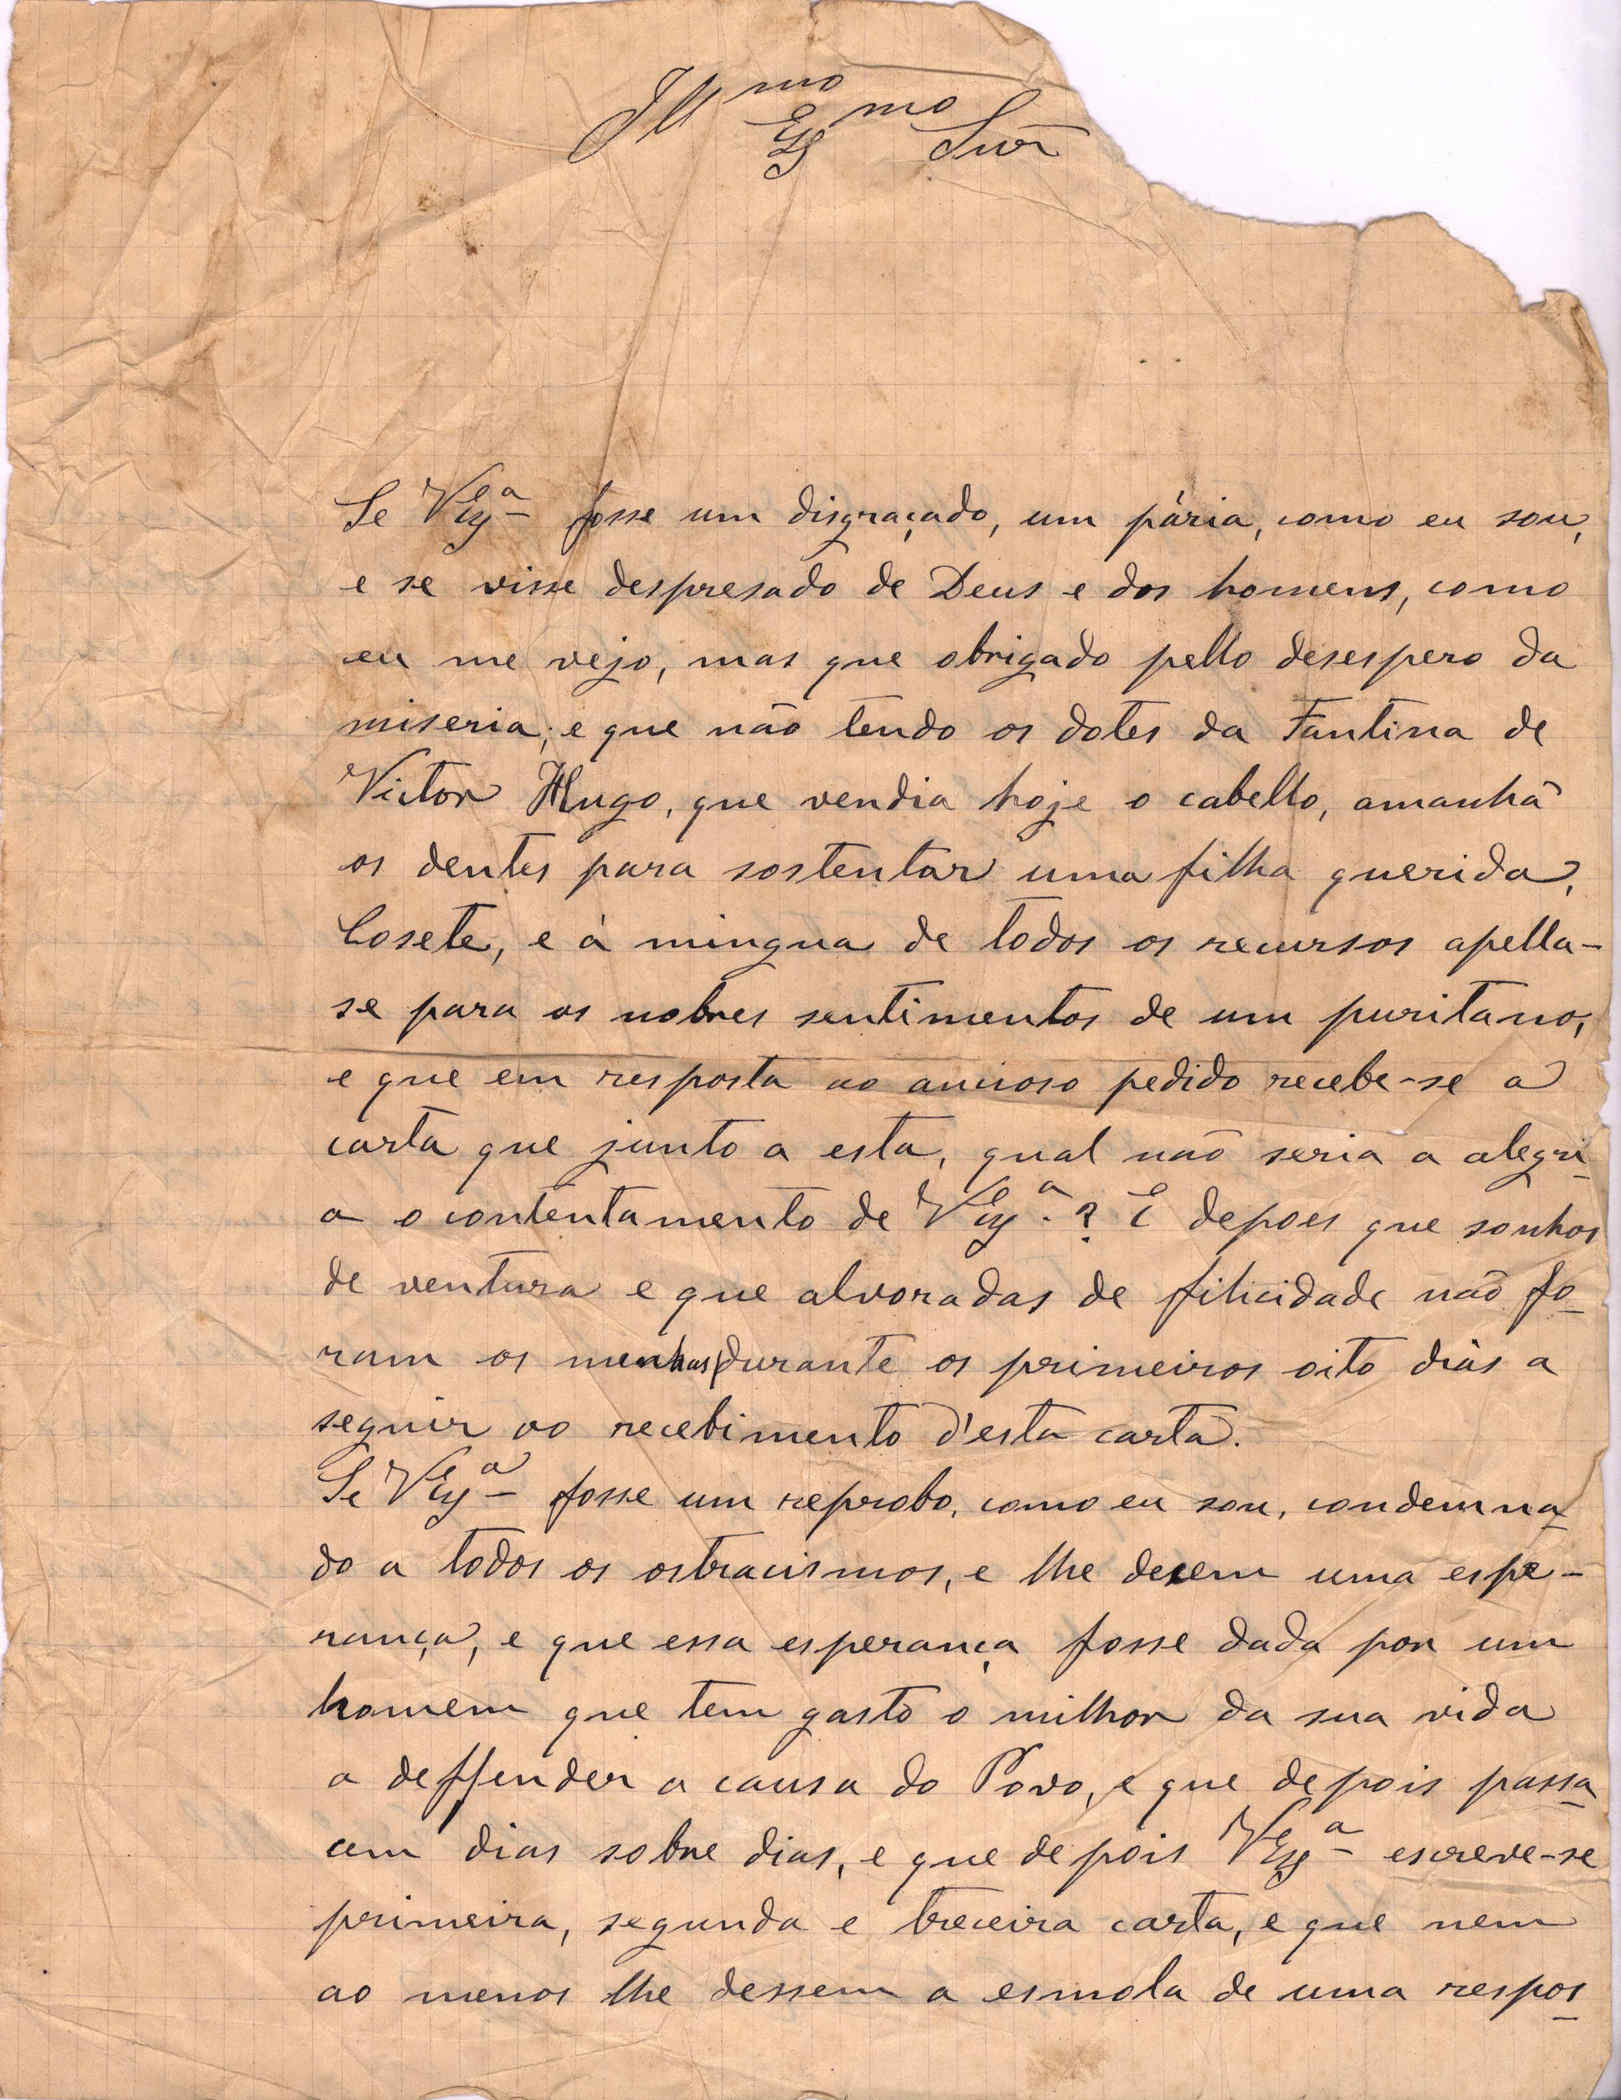 Illmo Exmo Snr
Se VExª fosse um disgraçado, um pária, como eu sou,
e se visse despresado de Deus e dos homens, como
eu me vejo, mas que obrigado pello desespero da
miseria; e que não tendo os dotes da Fantina de
Victor Hugo, que vendia hoje o cabello, amanhã
os dentes para sostentar uma filha querida,
Cosete, e á mingua de todos os recursos apella-
se para os nobres sentimentos de um puritano,
e que em resposta ao ancioso pedido recebe-se a
carta que junto a esta, qual não seria a alegri
a o contentamento de VExª. ? E depoes que sonhos
de ventura e que alvoradas de filicidade não fo
ram os menhas durante os primeiros oito dias a
seguir ao recebimento d'esta carta.
Se VExª fosse um reprobo, como eu sou, condemna
do a todos os ostracismos, e lhe desem uma espe-
rança, e que essa esperança fosse dada por um
homem que tem gasto o milhor da sua vida
a deffender a causa do Povo, e que depois passa
cem dias sobre dias, e que depois VExª escreve-se
primeira, segunda e treceira carta, e que nem
ao menos lhe dessem a esmola de uma respos